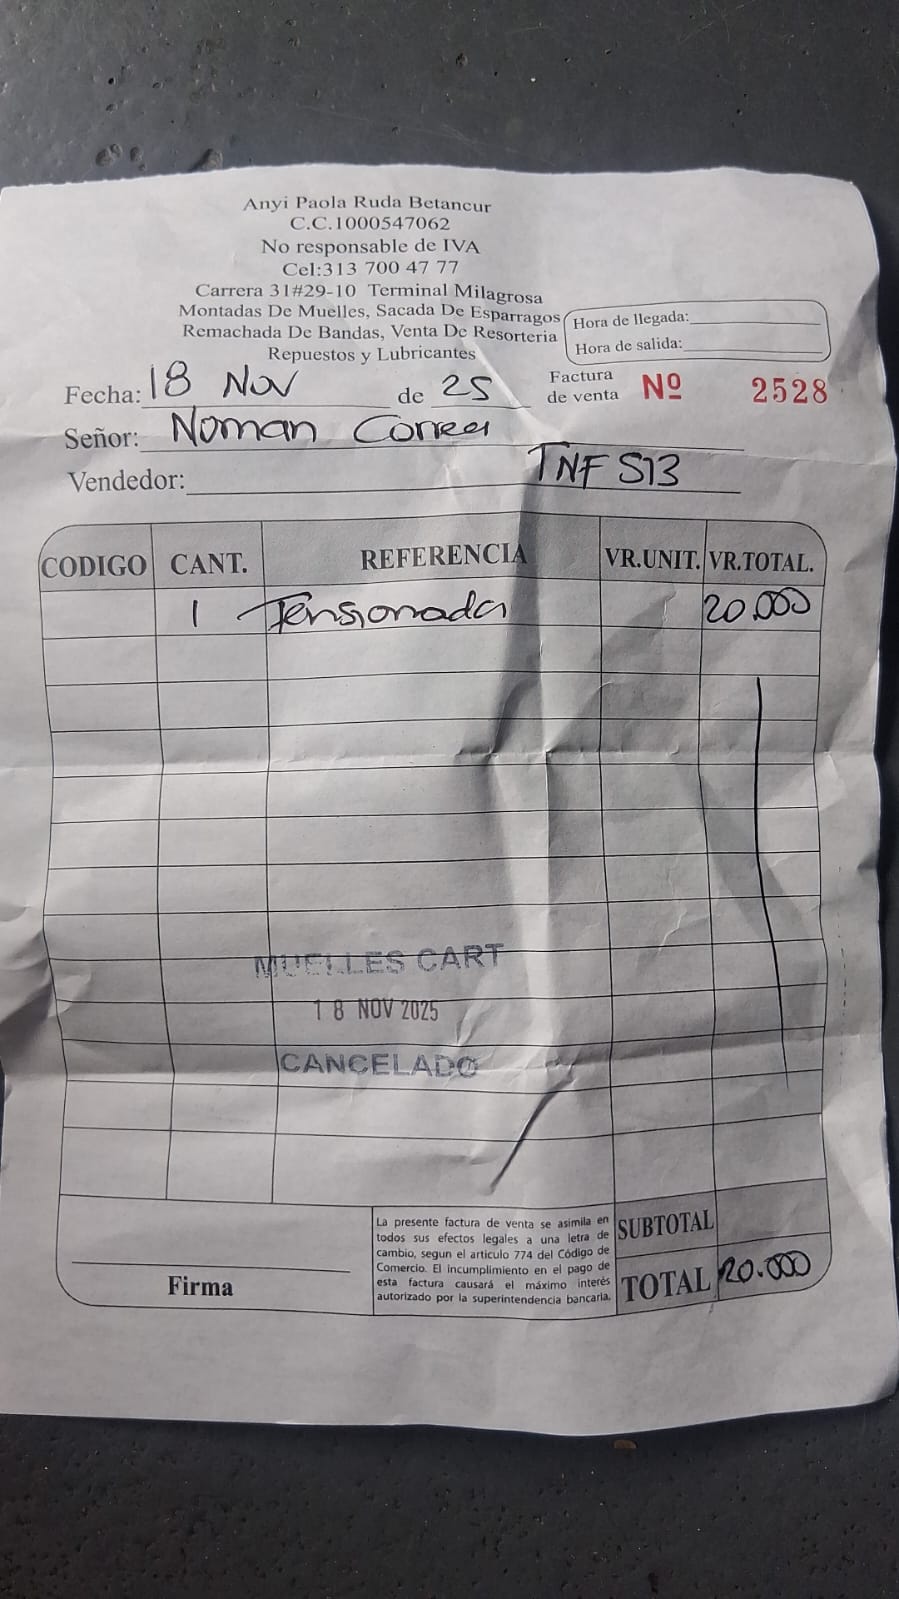 Anyi Paola Ruda Betancur
C.C.1000547062
No responsable de IVA
Cel:313 700 47 77
Carrera 31#29-10 Terminal Milagrosa
Montadas De Muelles, Sacada De Esparragos
Remachada De Bandas, Venta De Resorteria
Repuestos y Lubricantes
Hora de llegada:
Hora de salida:
Fecha: 18 Nov de 25
Factura de venta Nº 2528
Señor: Noman Correa
Vendedor:
TNF 513
CODIGO CANT. REFERENCIA VR.UNIT. VR.TOTAL.
1 Tensionada 20.000
MUELLES CART
18 NOV 2025
CANCELADO
La presente factura de venta se asimila en
todos sus efectos legales a una letra de
cambio, segun el articulo 774 del Código de
Comercio. El incumplimiento en el pago de
esta factura causará el máximo interés
autorizado por la superintendencia bancaria.
SUBTOTAL
TOTAL 20.000
Firma